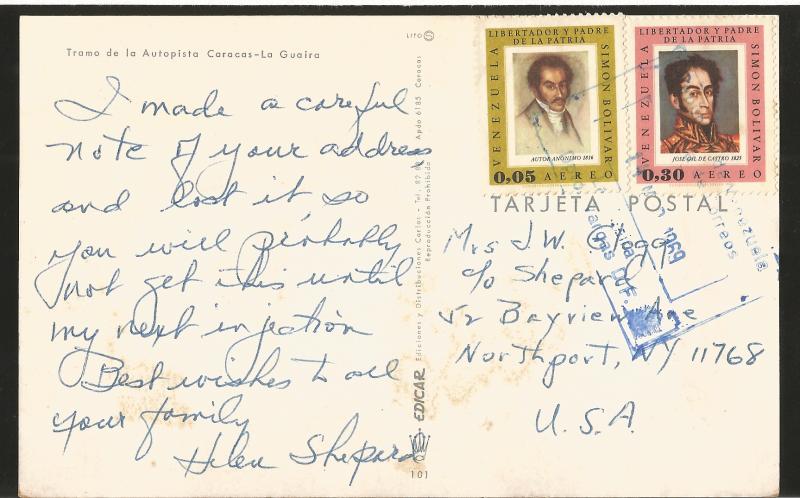 Tramo de la Autopista Caracas-La Guaira
I made a careful
note of your address
and lost it so
you will probably
not get this until
my next injection
Best wishes to all
your family
Helen Shepard
LITO
EDICAR Ediciones y Distribuciones Carlos - Tel. Apdo 6185 Caracas
Reproducción Prohibida
101
LIBERTADOR Y PADRE
DE LA PATRIA
VENEZUELA
SIMON BOLIVAR
AUTOR ANONIMO 1816
0,05 AEREO
LIBERTADOR Y PADRE
DE LA PATRIA
VENEZUELA
SIMON BOLIVAR
JOSE GIL DE CASTRO 1825
0,30 AEREO
TARJETA POSTAL
Mrs J.W. Clogg
c/o Shepard
52 Bayview Ave
Northport, NY 11768
U.S.A.
Venezuela
Correos
1969
D.F.